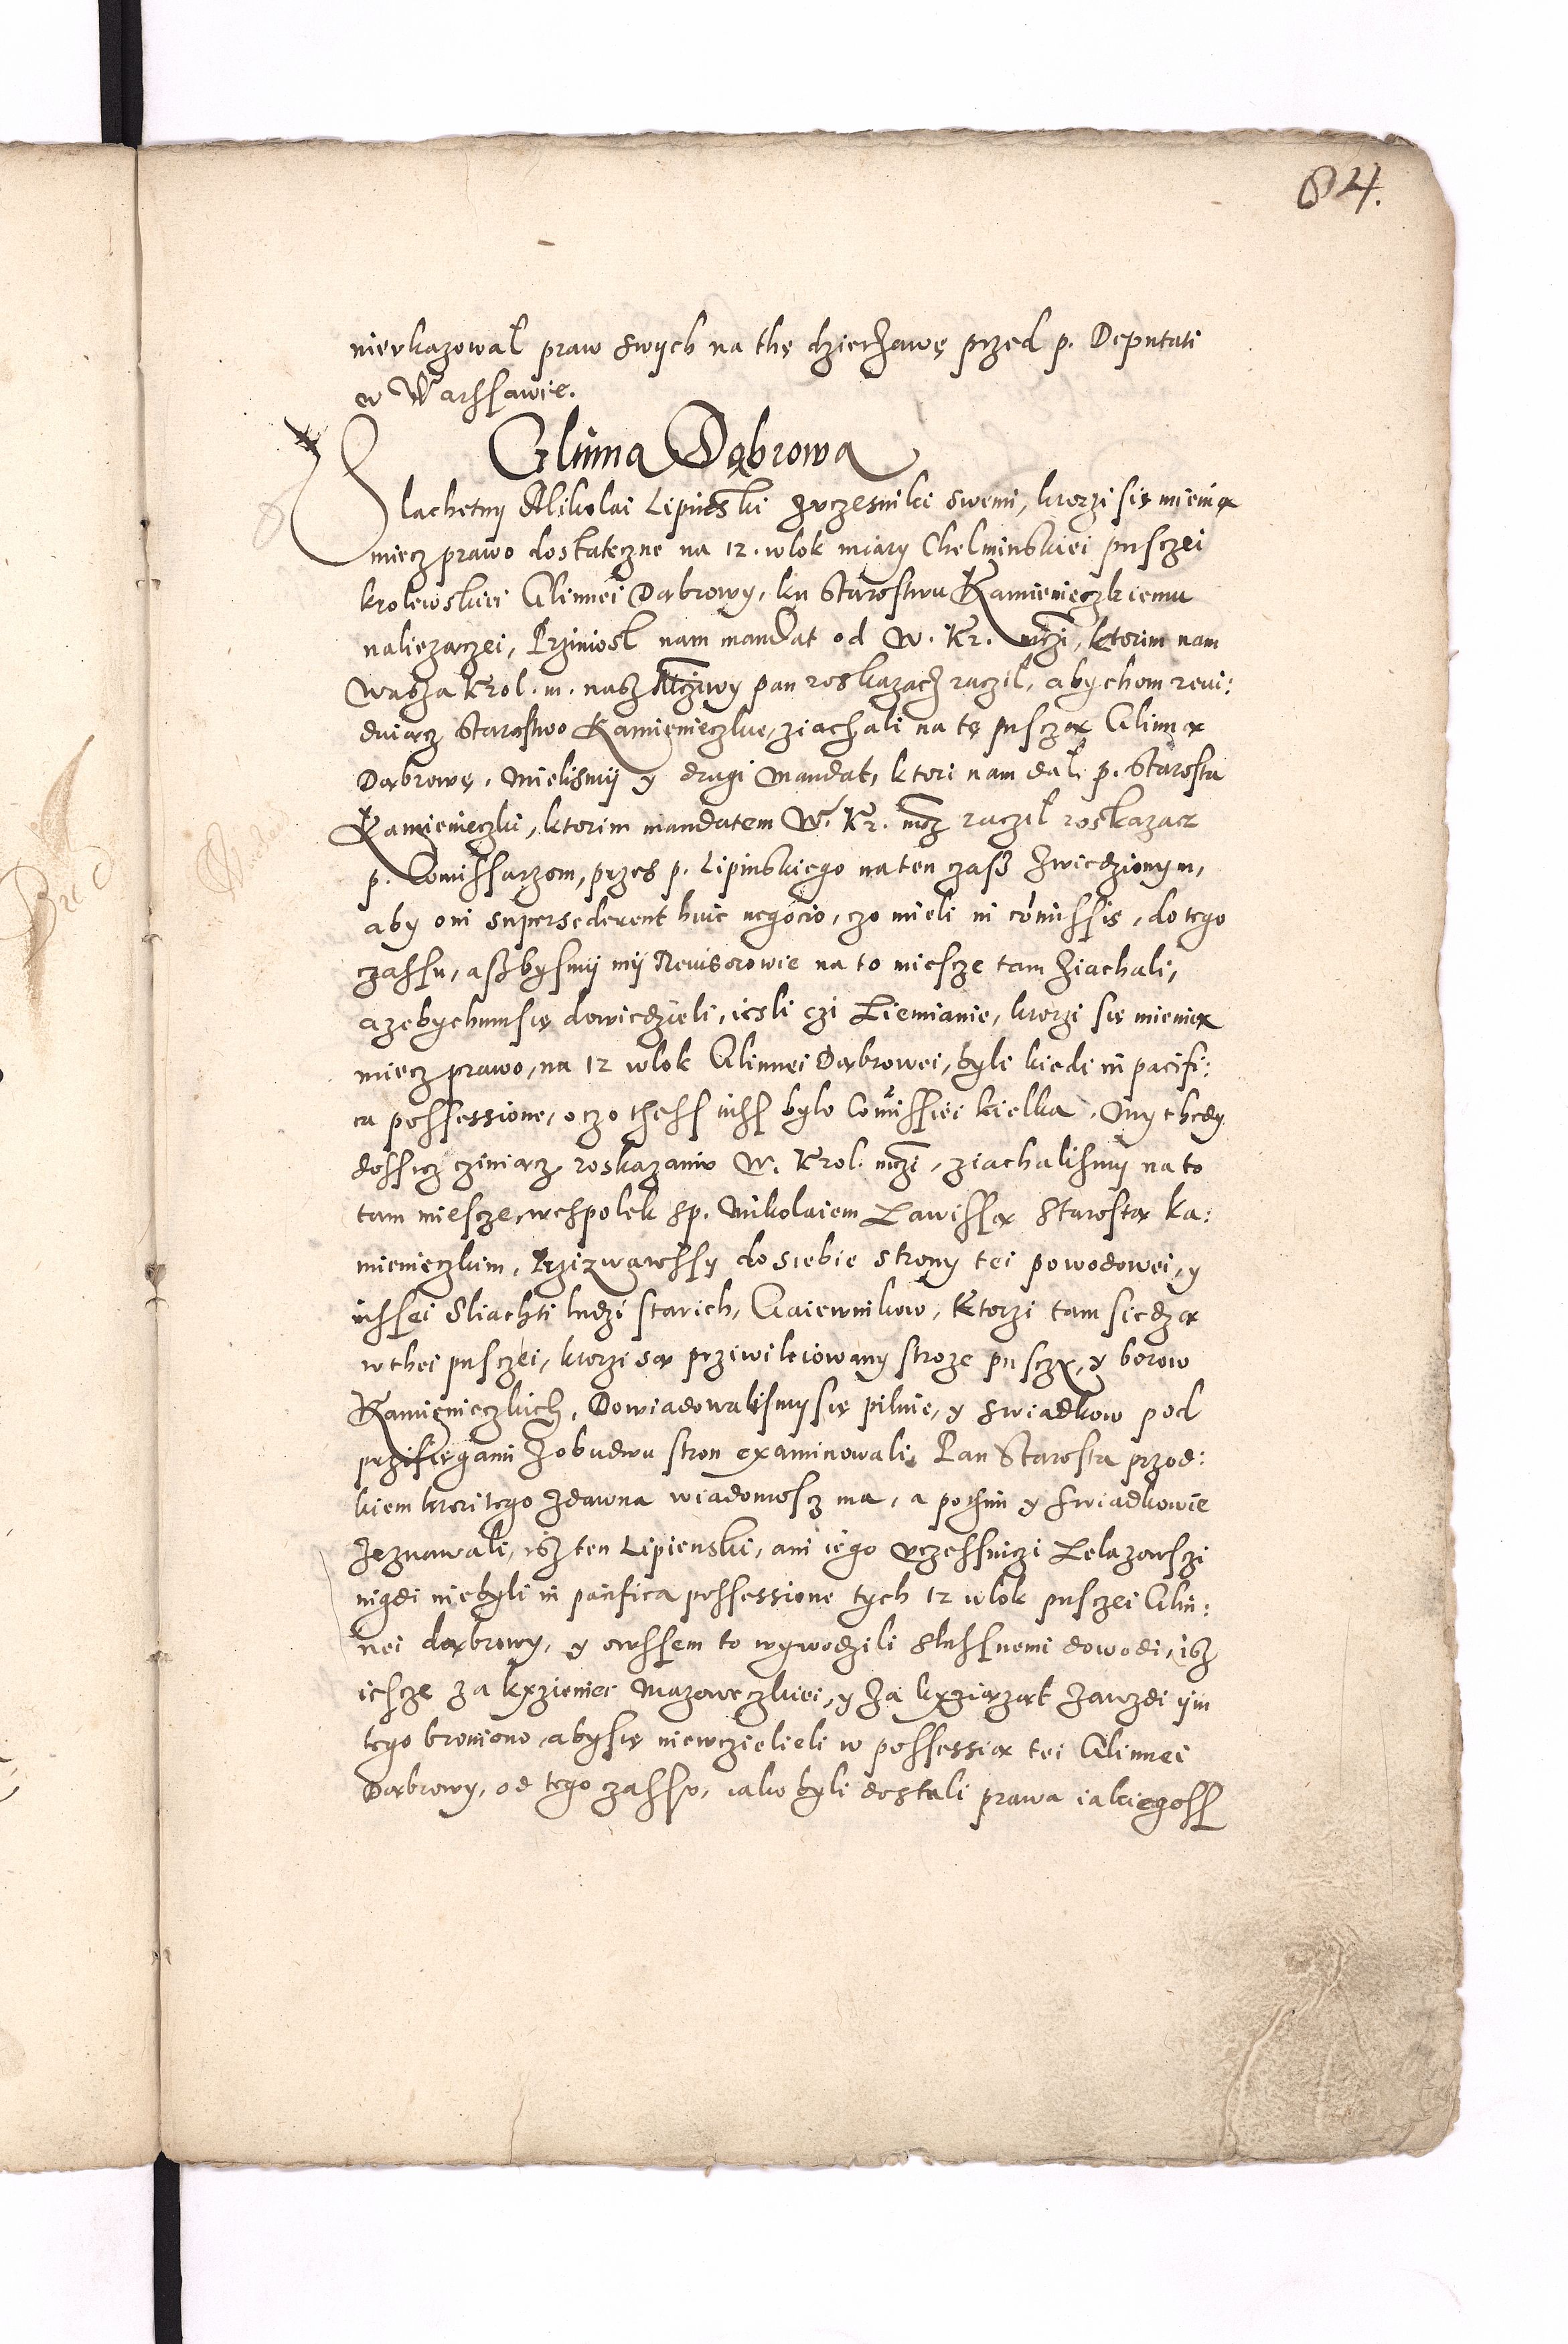 84.
nieukazowal praw swych na thę dzierżawę przed p. Deputati
w Warssawie.
Glinna Dąbrowa
Slachetny Mikolai Lipinski zuczesniki swemi, ktorzi się mienią
miecz prawo dostateczne na 12. wlok miary Chelminskiei pusczei
krolewskiei Glinnei Dąbrowy, ku Starostwu Kamienieczkiemu
należączei, Prziniosl nam mandat od W. Kr. mczi, ktorim nam
Wasza Krol. m. nasz Mczıwy pan roskazacz raczil, abychom reui:
duiącz Starostwo Kamienieczkie, ziachali na tę pusczą Glinną
Dąbrowę, Mielismy y drugi Mandat, ktori nam dal p. Starosta
Kamienieczki, ktorim mandatem W. Kr. mcz raczil roskazacz
p. Comissarzom, przes p. Lipinskiego na ten czass zwiedzionym,
aby oni supersederent huic negocio, czo mieli in cōmissis, do tego
czassu, aszbysmy my Reuisorowie na to miescze tam ziachali,
azebychmsię dowiedzieli, iesli czi Ziemianie, ktorzi się mienią
miecz prawo, na 12 wlok Glinnei Dąbrowei, byli kiedi in pacifi:
ca possessione, o czo thess iuss bylo Comissiei kielka. My thedy
dossicz cziniącz roskazaniu W. Krol. mczi, ziachalismy na to
tam miescze, wespolek sp. Mikolaiem Lawissą Starostą Ka:
mienieczkim, Przizwawssy do siebie strony tei powodowei, y
inssei Sliachti ludzi starich, Gaiewnikow, Ktorzi tam siedzą
wthei pusczei, ktorzi są prziwileiowany stroze pusczy, y borow
Kamienieczkich, Dowiadowalismysię pilnie, y swiadkow pod
przisięgami zobudwu stron examinowali. Pan Starosta przod:
kiem ktori tego zdawna wiadomoscz ma, a pothim y swiadkowie
zeznawali, isz ten Lipienski, ani iego uczessniczi Zelazowsczi
nigdi niebyli in pacifica possessione tych 12 wlok pusczei Glin:
nei dąbrowy, y owssem to wywodzili slussnemi dowodi, isz
iescze za kxzieniei Mazoweczkiei, y za kxziążąt zawzdi ym
tego broniono, abysię niewczielieli w possessią tei Glinnei
Dąbrowy, od tego czassu, iako byli dostali prawa iakiegoss